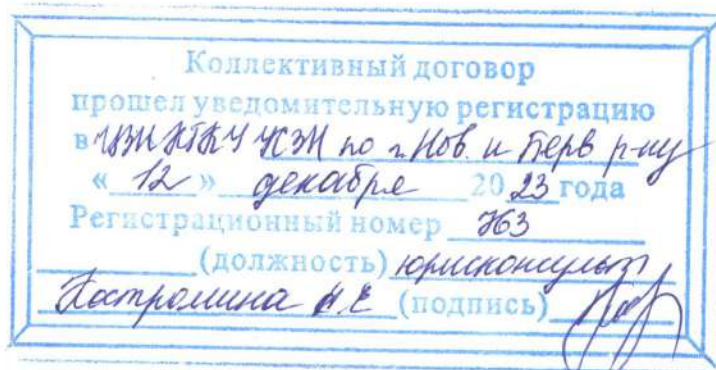 Коллективный договор
прошел уведомительную регистрацию
в ЦЗН НТКУ УСЗН по г. Нов. и Берв р-ну
« 12 » декабря 20 23 года
Регистрационный номер 763
(должность) юрисконсульт
Костромина Н.Е (подпись)